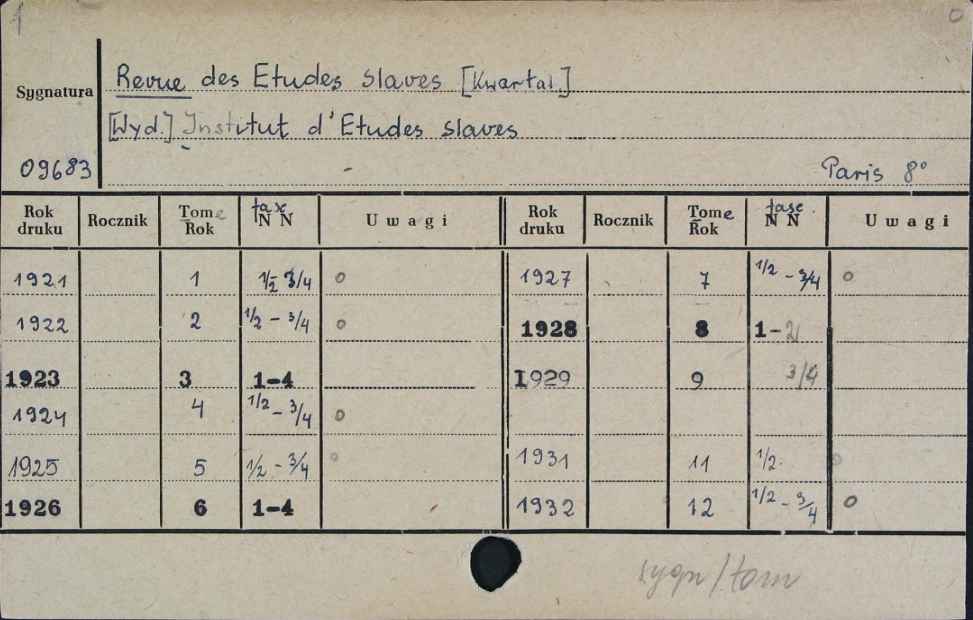 1 0
Revue des Etudes slaves [Kwartal.]
Sygnatura
[Wyd.] Institut d'Etudes slaves
09683 Paris 8°
Rok druku Rocznik Tome Rok fasc N N Uwagi Rok druku Rocznik Tome Rok fasc. N N Uwagi
1921 1 1/2 3/4 o 1927 7 1/2 - 3/4 o
1922 2 1/2 - 3/4 o 1928 8 1-2
1923 3 1-4 1929 9 3/4
1924 4 1/2 - 3/4 o
1925 5 1/2 - 3/4 o 1931 11 1/2. o
1926 6 1-4 1932 12 1/2 - 3/4 o
sygn/tom